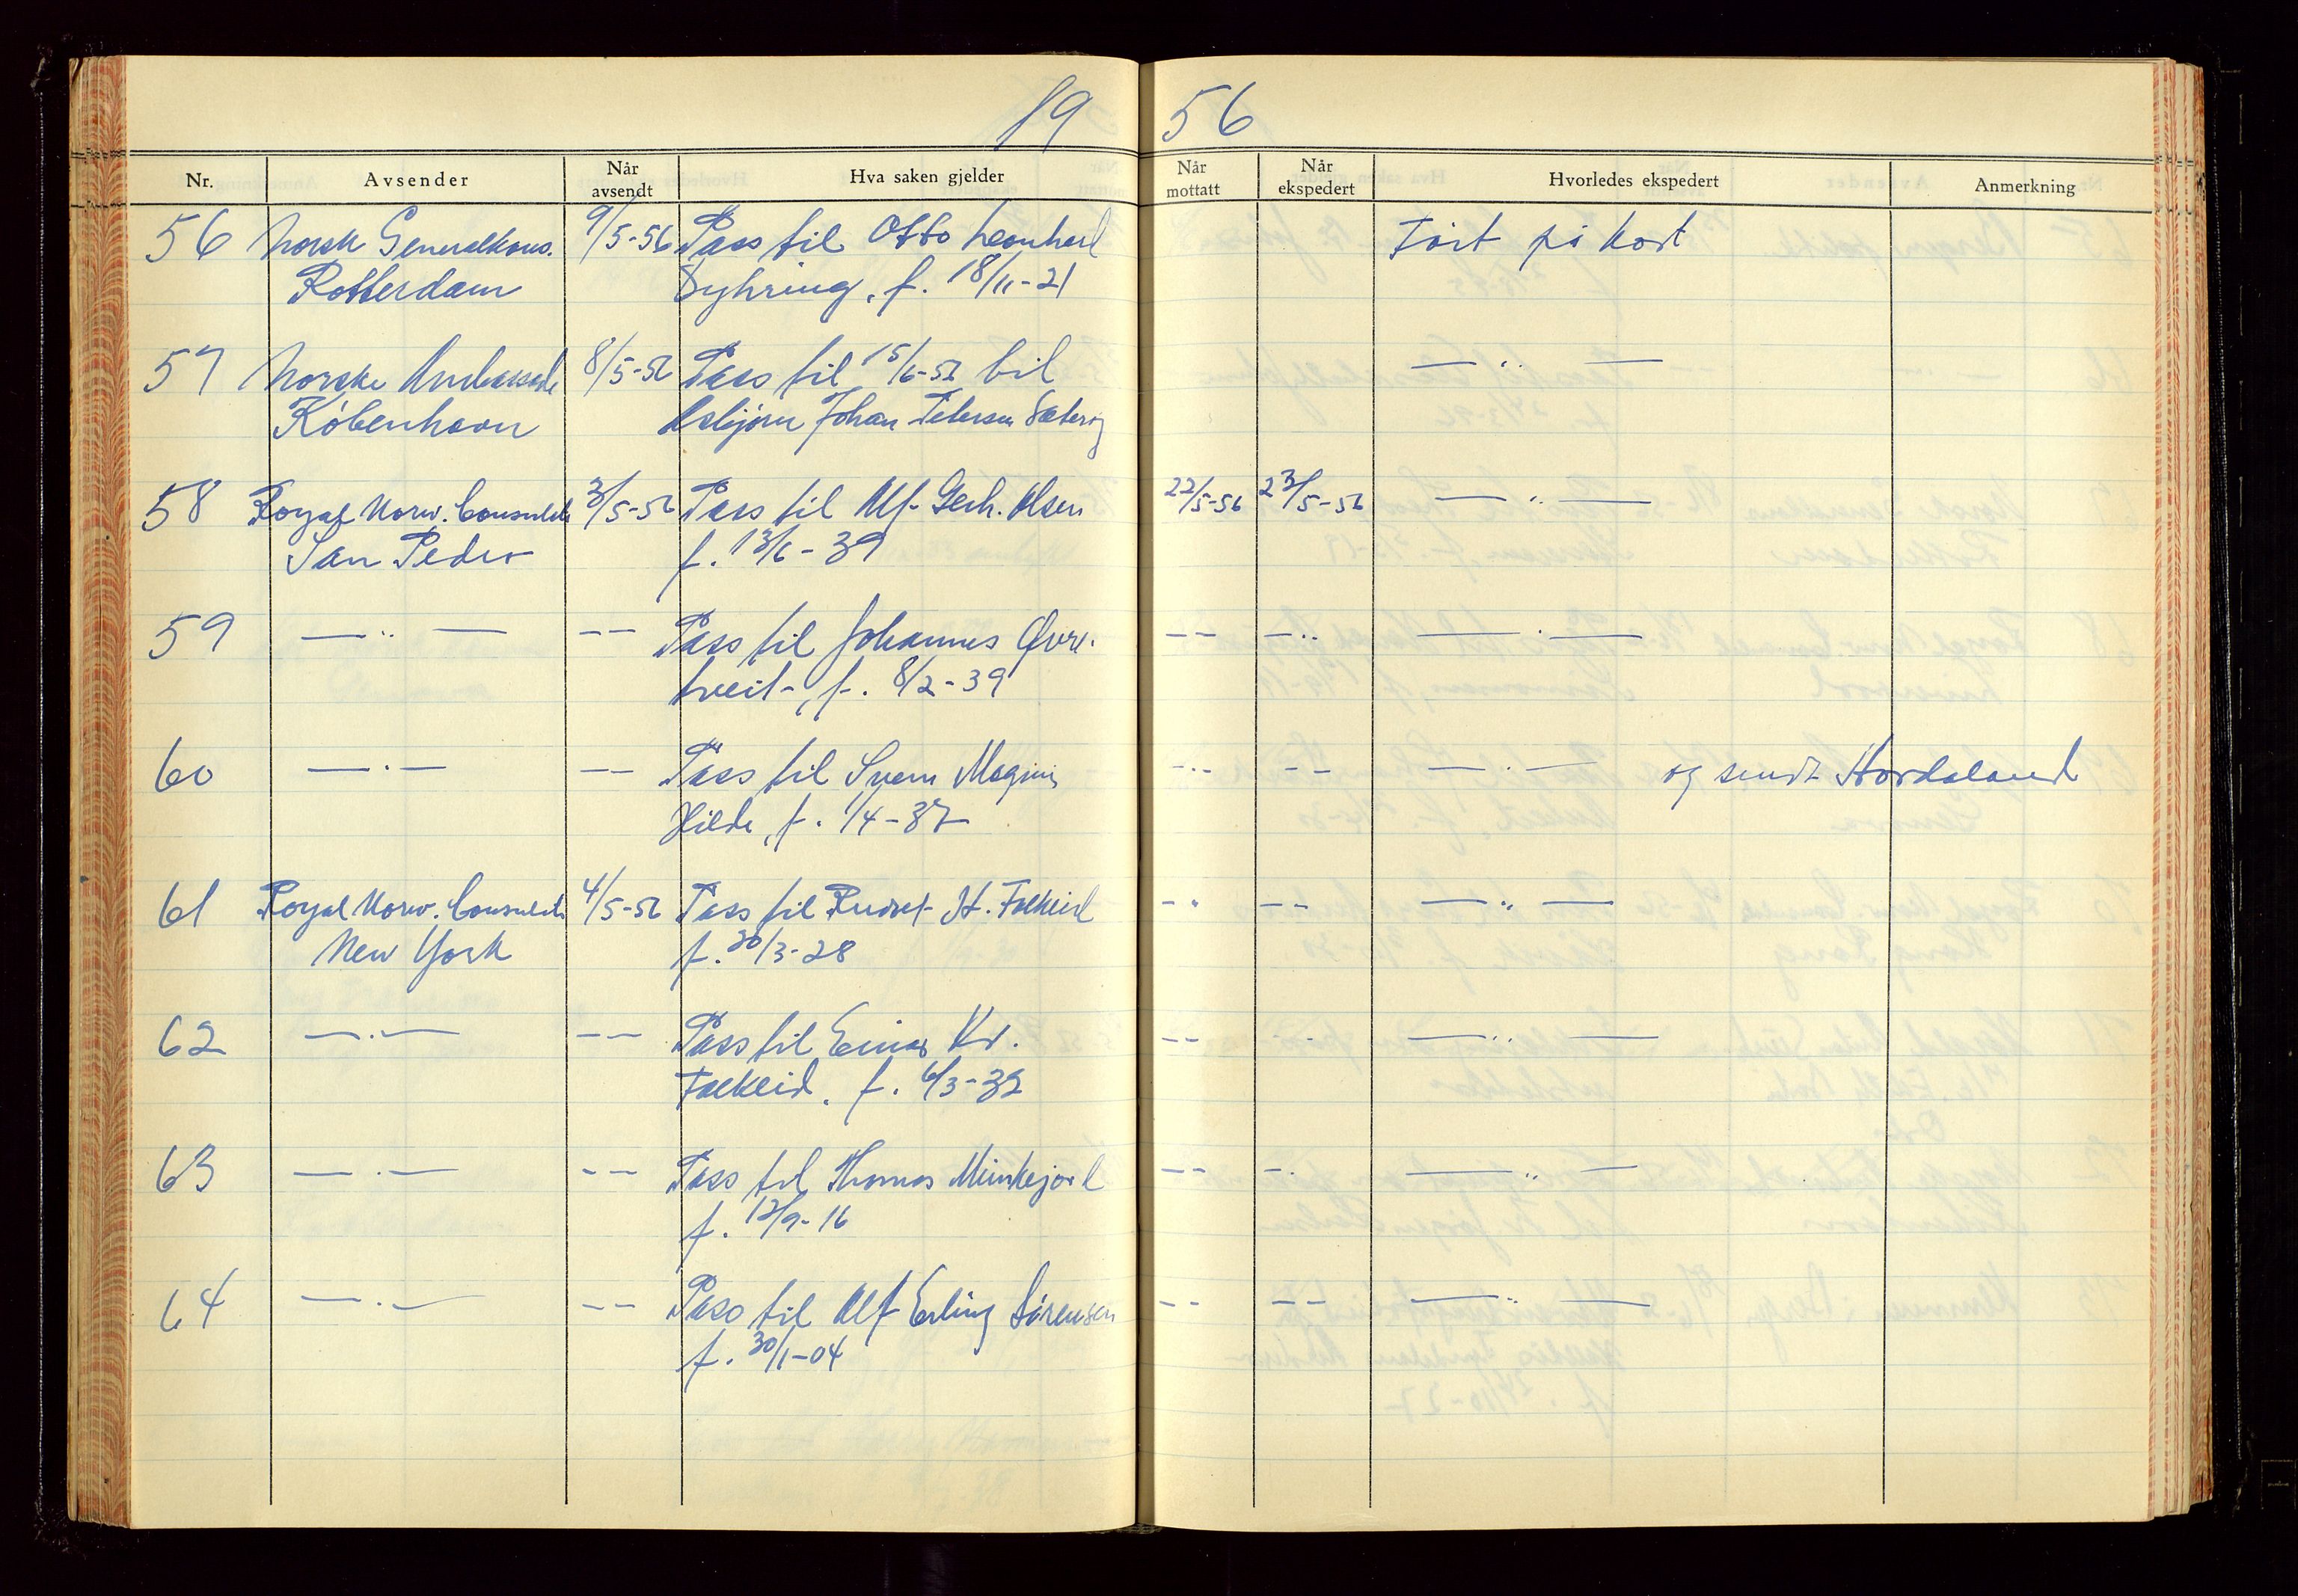 19 56
Nr. Avsender Når avsendt Hva saken gjelder Når mottatt Når ekspedert Hvorledes ekspedert Anmerkning
56 Norsk Generalkons. 9/5-56 Pass til Otto Leonhard Ført på kort
Rotterdam Syhring, f. 18/11-21
57 Norske Ambassade 8/5-56 Pass til 15/6-56 til — " —
København Asbjørn Johan Petersen
58 Royal Norw. Consulate 3/5-56 Pass til Alf Gerh. Olsen 22/5-56 23/5-56 — " —
San Pedro f. 13/6-39
59 — " — -- Pass til Johannes Øvre- -- -" — " —
tveit, f. 8/2-39
60 — " — -- Pass til Svein Magnus -"- -- — " — og sendt Hordaland
Hilde, f. 1/4-37
61 Royal Norw. Consulate 4/5-56 Pass til St. Falkeid -" -- — " —
New York f. 30/3-28
62 — " — -- Pass til Einar Kr. -- -- — " —
Falkeid, f. 6/3-32
63 — " — -- Pass til Thomas Munkejord -- -" — " —
f. 12/9-16
64 — " — -- Pass til Alf Erling Sørensen -- -- — " —
f. 30/1-04